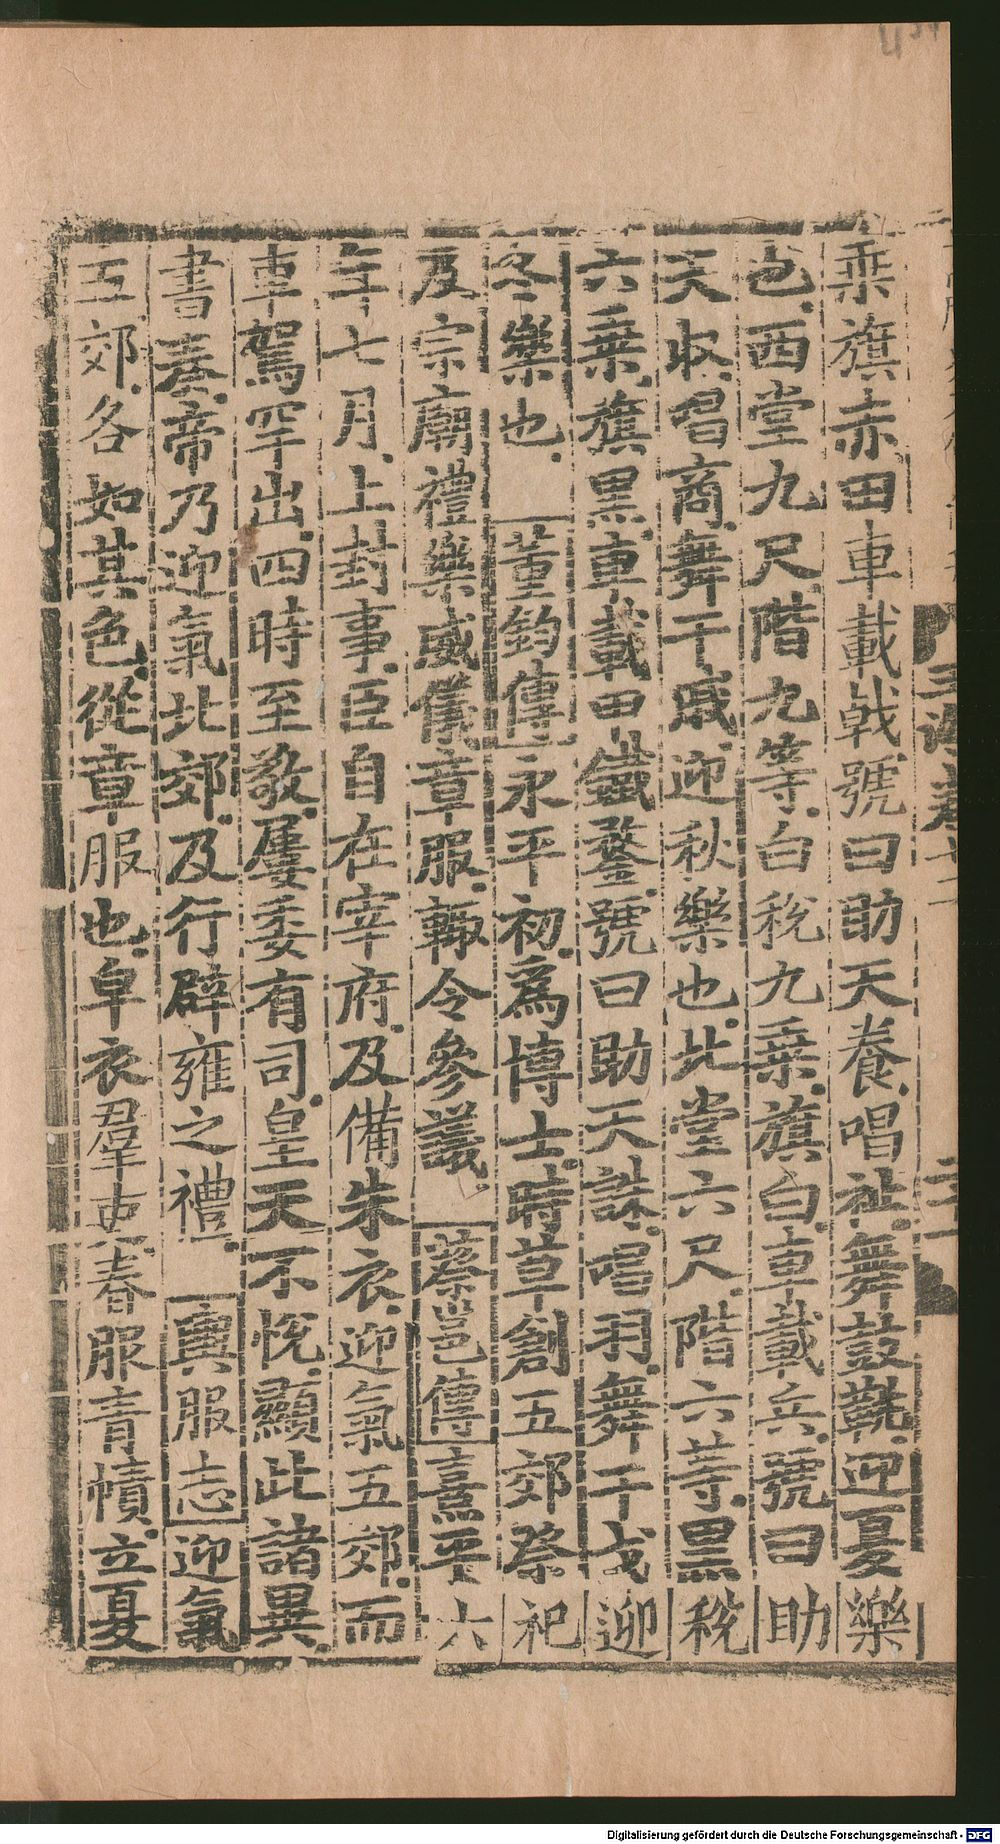 乗旗赤田車載戟號曰助天養唱祉舞鼓鞉迎夏樂
也西堂九尺階九等白稅九乗旗白車載兵號曰助
天收唱商舞干戚迎秋樂也北堂六尺階六等黒稅
六乗旗黒車載甲鐵鍪號曰助天誅唱羽舞干戈迎
冬樂也 董鈞傳永平初爲博士時草創五郊祭祀
及宗廟禮樂威儀章服輙令參議 蔡邕傳熹平六
年七月上封事臣自在宰府及備朱衣迎氣五郊而
車駕罕出四時至敬屢委有司皇天不悅顯此諸異
書奏帝乃迎氣北郊及行辟雍之禮 輿服志迎氣
五郊各如其色從章服也皁衣羣吏春服青幘立夏
Digitalisierung gefördert durch die Deutsche Forschungsgemeinschaft - DFG